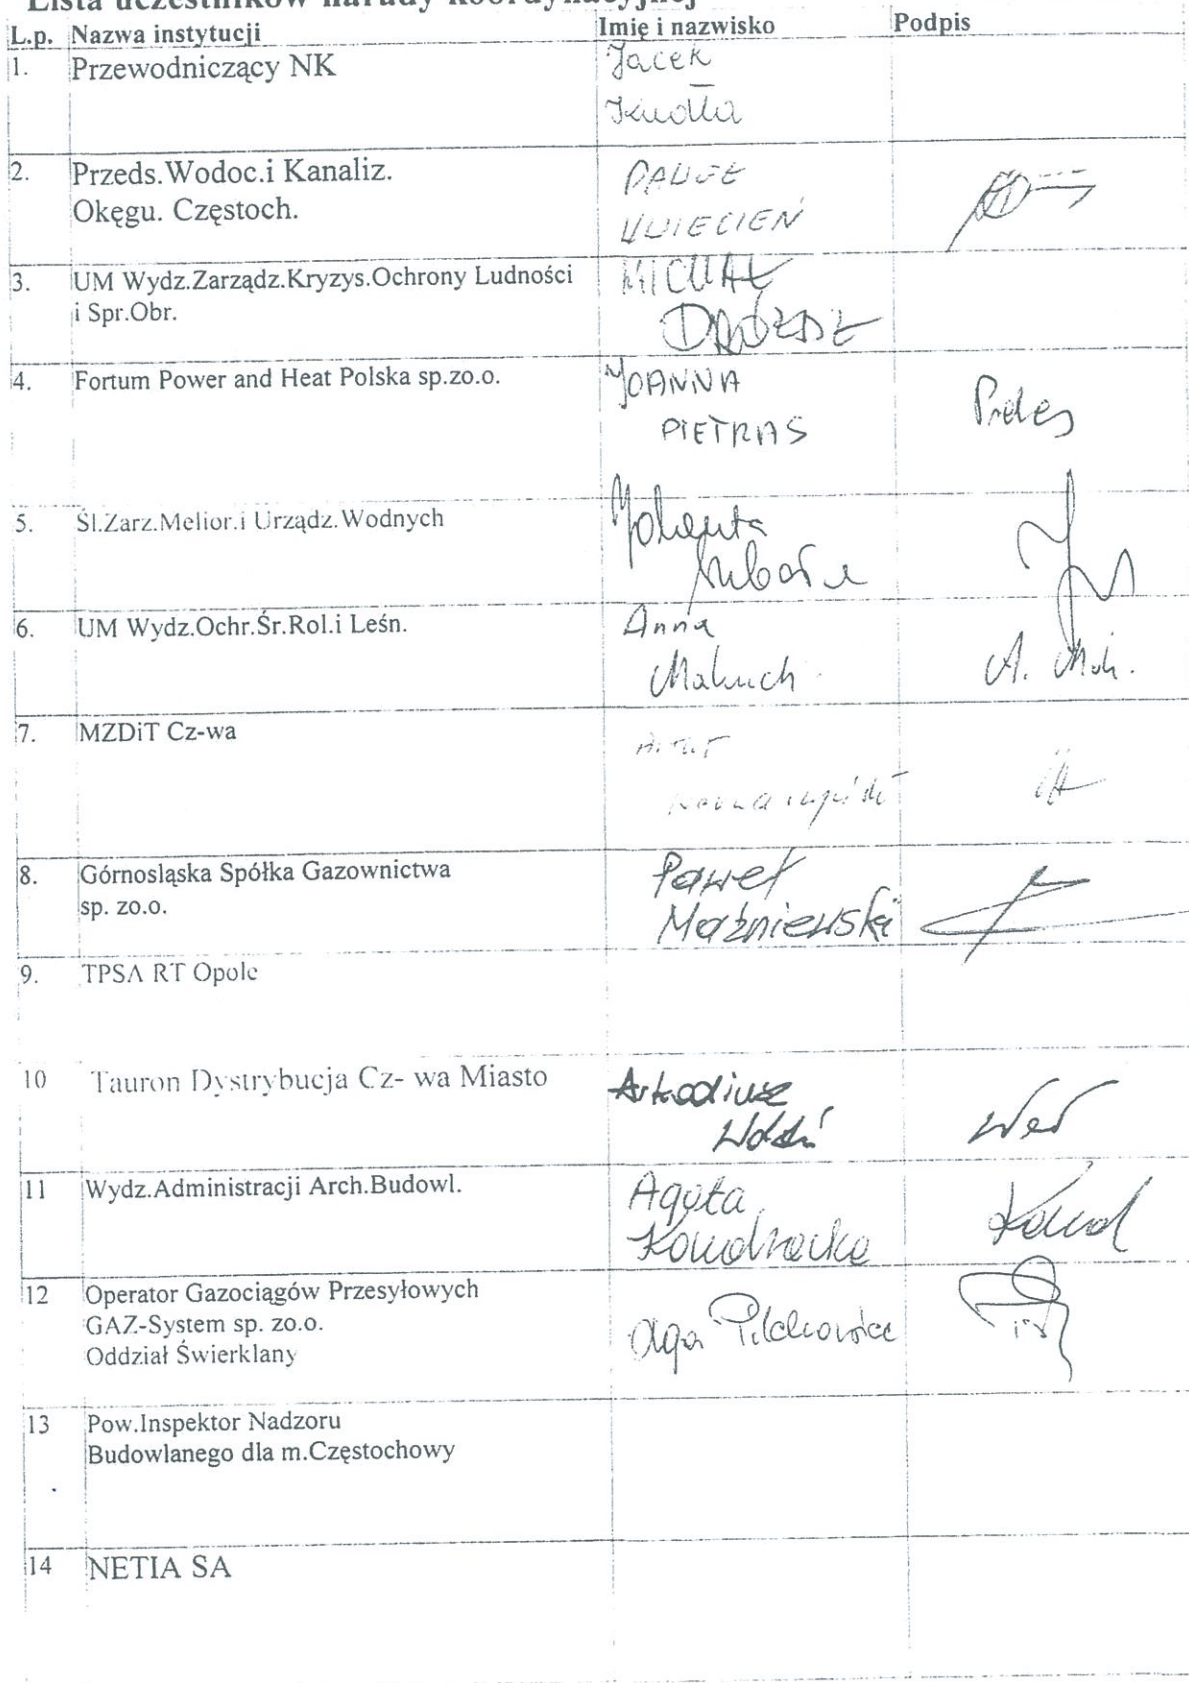 Lista uczestników narady koordynacyjnej
L.p. Nazwa instytucji Imię i nazwisko Podpis
1. Przewodniczący NK Jacek
Kudła
2. Przeds.Wodoc.i Kanaliz. PAWEŁ
Okęgu. Częstoch. KWIECIEŃ
3. UM Wydz.Zarządz.Kryzys.Ochrony Ludności MICHAŁ
i Spr.Obr. DRÓŻDŻ
4. Fortum Power and Heat Polska sp.zo.o. JOANNA
PIETRAS
5. Śl.Zarz.Melior.i Urządz.Wodnych Jolanta
6. UM Wydz.Ochr.Śr.Rol.i Leśn. Anna
Maluch A.
7. MZDiT Cz-wa Artur
8. Górnosląska Spółka Gazownictwa Paweł
sp. zo.o. Możniewski
9. TPSA RT Opole
10 Tauron Dystrybucja Cz- wa Miasto Arkadiusz
11 Wydz.Administracji Arch.Budowl. Agata
12 Operator Gazociągów Przesyłowych
GAZ-System sp. zo.o. Olga
Oddział Świerklany
13 Pow.Inspektor Nadzoru
Budowlanego dla m.Częstochowy
14 NETIA SA